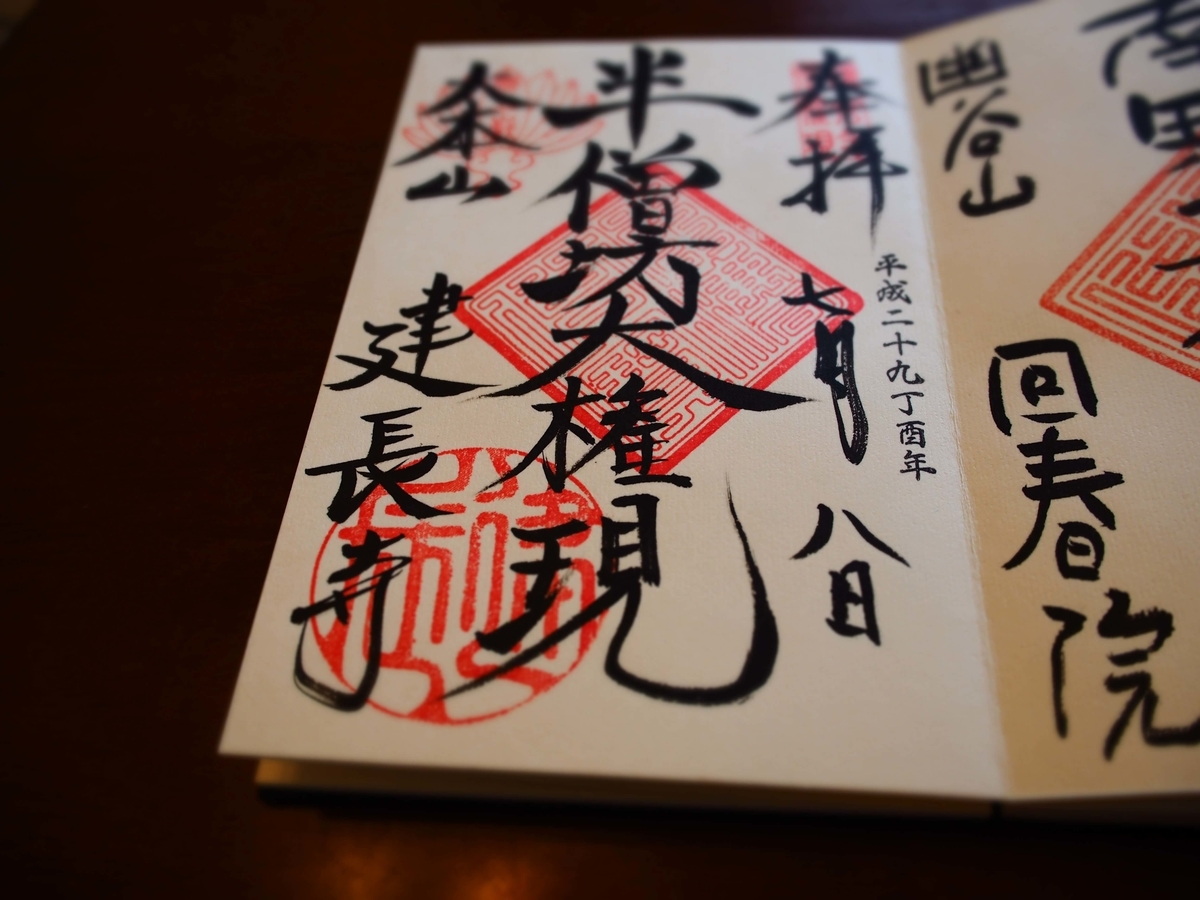 幽谷山
回春院
平成二十九丁酉年
奉拝
七月八日
半僧坊大権現
大本山
建長寺